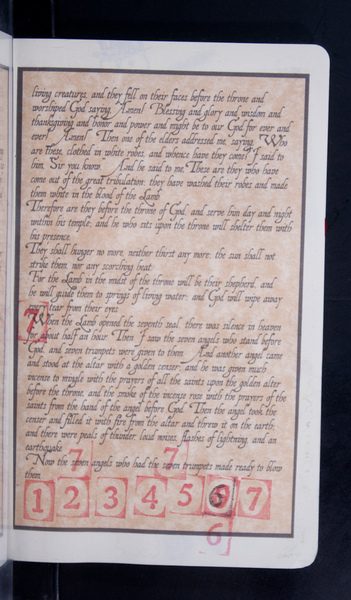 living creatures, and they fell on their faces before the throne and
worshiped God, saying, Amen! Blessing and glory and wisdom and
thanksgiving and honor and power and might be to our God for ever and
ever! Amen! Then one of the elders addressed me, saying, Who
are these, clothed in white robes, and whence have they come? I said to
him, Sir, you know. And he said to me, These are they who have
come out of the great tribulation; they have washed their robes and made
them white in the blood of the Lamb.
Therefore are they before the throne of God, and serve him day and night
within his temple; and he who sits upon the throne will shelter them with
his presence.
They shall hunger no more, neither thirst any more; the sun shall not
strike them, nor any scorching heat.
For the Lamb in the midst of the throne will be their shepherd, and
he will guide them to springs of living water; and God will wipe away
every tear from their eyes.
7
When the Lamb opened the seventh seal, there was silence in heaven
for about half an hour. Then I saw the seven angels who stand before
God, and seven trumpets were given to them. And another angel came
and stood at the altar with a golden censer; and he was given much
incense to mingle with the prayers of all the saints upon the golden altar
before the throne; and the smoke of the incense rose with the prayers of the
saints from the hand of the angel before God. Then the angel took the
censer and filled it with fire from the altar and threw it on the earth;
and there were peals of thunder, loud noises, flashes of lightning, and an
earthquake.
7 7
Now the seven angels who had the seven trumpets made ready to blow
them.
1 2 3 4 5 6 7
6